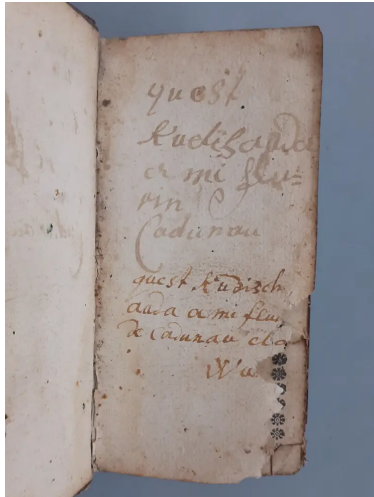 quest
Kudisch auda
a mi flu=
rin
Cadunau
quest Kudisch
auda a mi flu
de Cadunau